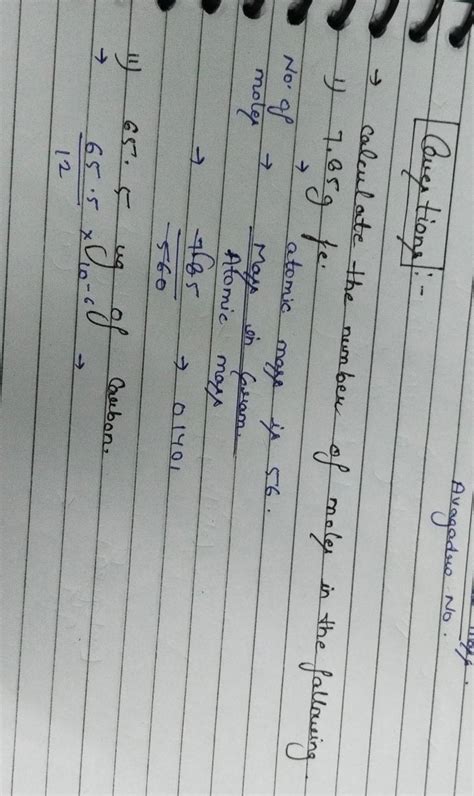 Mass.
Avogadro No.
Questions :-
→ Calculate the number of moles in the following.
i) 7.85g Fe.
→ atomic mass is 56.
No. of moles → Mass in Gram.
Atomic mass
→ 785
560
→ 0.1401
ii) 65.5 ug of Carbon.
→ 65.5 × 10-6
12
→